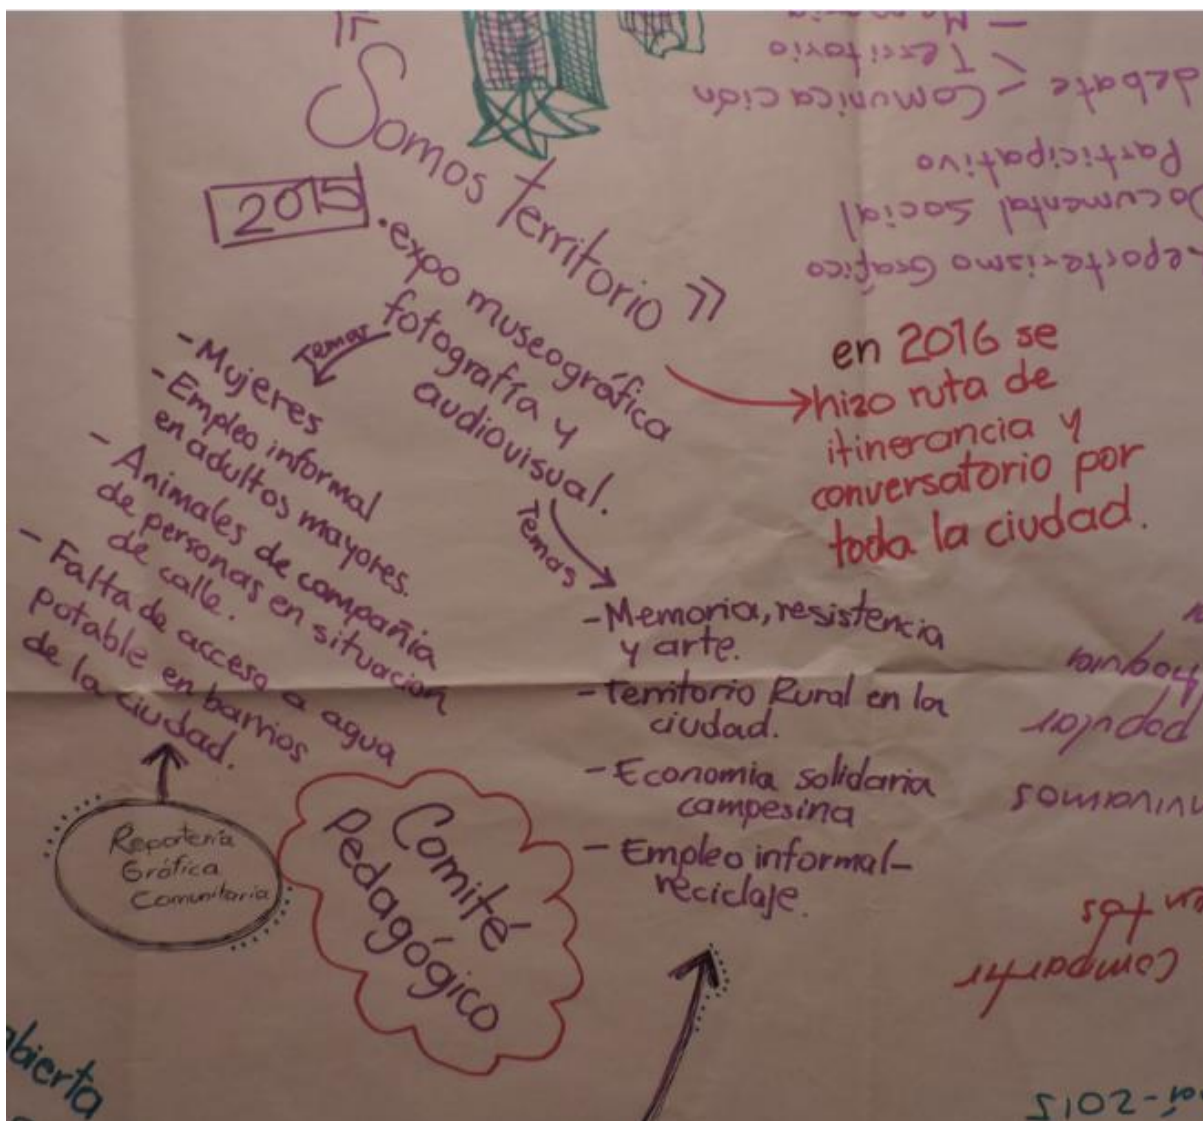 "Somos Territorio"
2015
·expo museográfica
fotografía y
audiovisual.
Temas
-Mujeres
-Empleo informal
en adultos mayores.
- Animales de compañia
de personas en situación
de calle.
- Falta de acceso a agua
potable en barrios
de la ciudad.
Reportería
Gráfica
Comunitaria
Comité
Pedagógico
Temas
-Memoria, resistencia
y arte.
-Territorio Rural en la
ciudad.
-Economia solidaria
campesina
- Empleo informal-
reciclaje.
en 2016 se
hizo ruta de
itinerancia y
conversatorio por
toda la ciudad.
eporterismo Gráfico
ocumental Social
Participativo
debate < Comunicación
Territorio
popular
compartir
-2015
abierta